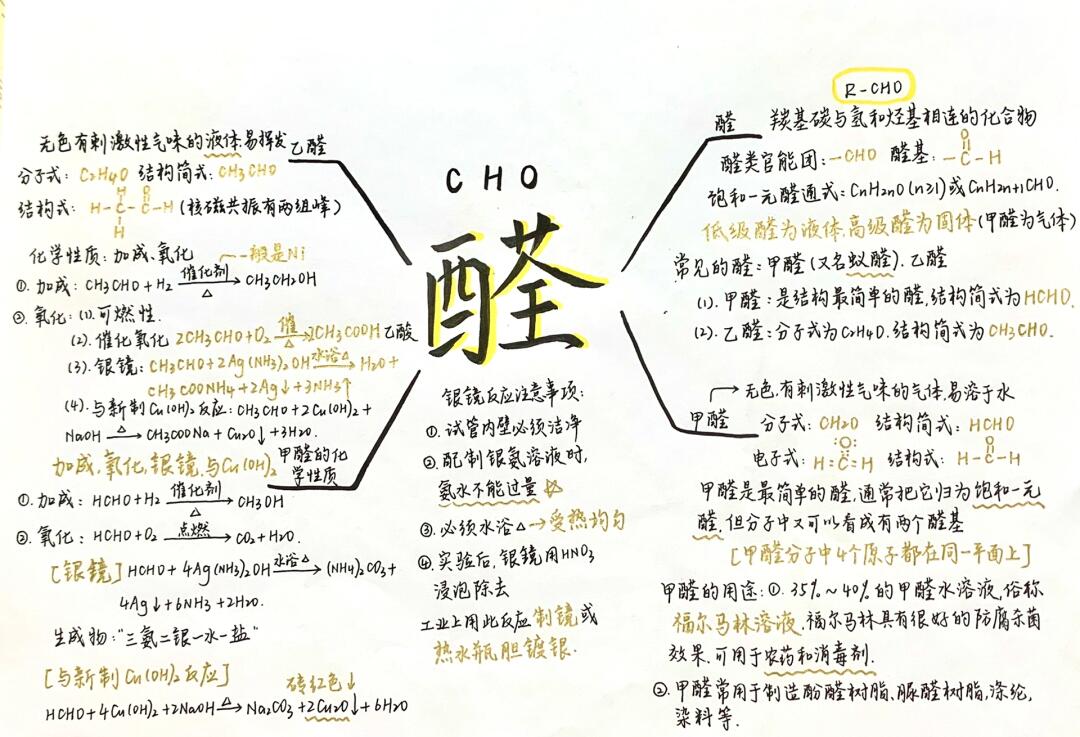 CHO
醛
R-CHO
醛
羰基碳与氢和烃基相连的化合物
醛类官能团:-CHO 醛基:-C-H
O
饱和一元醛通式:CnH2nO(n≥1)或CnH2n+1CHO.
低级醛为液体,高级醛为固体(甲醛为气体)
常见的醛:甲醛(又名蚁醛).乙醛
(1).甲醛:是结构最简单的醛,结构简式为HCHO.
(2).乙醛:分子式为C2H4O.结构简式为CH3CHO.
甲醛
无色,有刺激性气味的气体,易溶于水
分子式:CH2O 结构简式:HCHO
电子式:H:C:H 结构式:H-C-H
O O
甲醛是最简单的醛,通常把它归为饱和一元
醛,但分子中又可以看成有两个醛基
[甲醛分子中4个原子都在同一平面上]
甲醛的用途:①.35%~40%的甲醛水溶液,俗称
福尔马林溶液.福尔马林具有很好的防腐杀菌
效果.可用于农药和消毒剂.
②.甲醛常用于制造酚醛树脂、脲醛树脂,涤纶,
染料等.
乙醛
无色有刺激性气味的液体易挥发
分子式:C2H4O 结构简式:CH3CHO
H O
结构式:H-C-C-H(核磁共振有两组峰)
H
化学性质:加成、氧化 一般是Ni
①.加成:CH3CHO+H2 催化剂△→ CH3CH2OH
②.氧化:(1).可燃性.
(2).催化氧化 2CH3CHO+O2 催△→ 2CH3COOH乙酸
(3).银镜:CH3CHO+2Ag(NH3)2OH 水浴△→ H2O+
CH3COONH4+2Ag↓+3NH3↑
(4).与新制Cu(OH)2反应:CH3CHO+2Cu(OH)2+
NaOH △→ CH3COONa+Cu2O↓+3H2O.
加成,氧化,银镜,与Cu(OH)2
甲醛的化
学性质
①.加成:HCHO+H2 催化剂△→ CH3OH
②.氧化:HCHO+O2 点燃→ CO2+H2O.
[银镜]HCHO+4Ag(NH3)2OH 水浴△→ (NH4)2CO3+
4Ag↓+6NH3+2H2O.
生成物:“三氨二银一水一盐”
[与新制Cu(OH)2反应] 砖红色↓
HCHO+4Cu(OH)2+2NaOH △→ Na2CO3+2Cu2O↓+6H2O
银镜反应注意事项:
①.试管内壁必须洁净
②.配制银氨溶液时,
氨水不能过量☆
③.必须水浴△→受热均匀
④.实验后,银镜用HNO3
浸泡除去
工业上用此反应制镜或
热水瓶胆镀银.